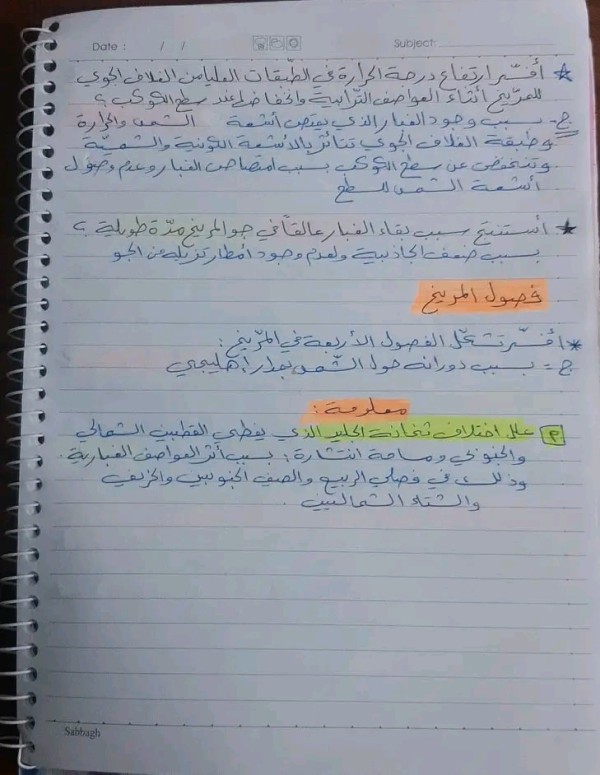 Date : / / Subject:
★ أفسّر ارتفاع درجة الحرارة في الطبقات العليا من الغلاف الجوي
للمرّيخ أثناء العواصف الترابية وانخفاضها عند سطح الكوكب ؟
ج- بسبب وجود الغبار الذي يمتص أشعة الشمس والحرارة
وطبقة الغلاف الجوي تتأثر بالأشعة الكونية والشمسية
وتنخفض عن سطح الكوكب بسبب امتصاص الغبار وعدم وصول
أشعة الشمس للسطح
★ أستنتج سبب بقاء الغبار عالقاً في جو المريخ مدّة طويلة ؟
بسبب ضعف الجاذبية ولعدم وجود أمطار تزيله عن الجو
فصول المريخ
* أفسّر تشكّل الفصول الأربعة في المرّيخ :
ج- بسبب دورانه حول الشمس بمدار إهليلجي
معلومة :
م علل اختلاف ثخانة الجليد الذي يغطي القطبين الشمالي
والجنوبي ومساحة انتشاره : بسبب أثر العواصف الغبارية .
وذلك في فصلي الربيع والصيف الجنوبيين والخريف
والشتاء الشماليين .
Sabbagh